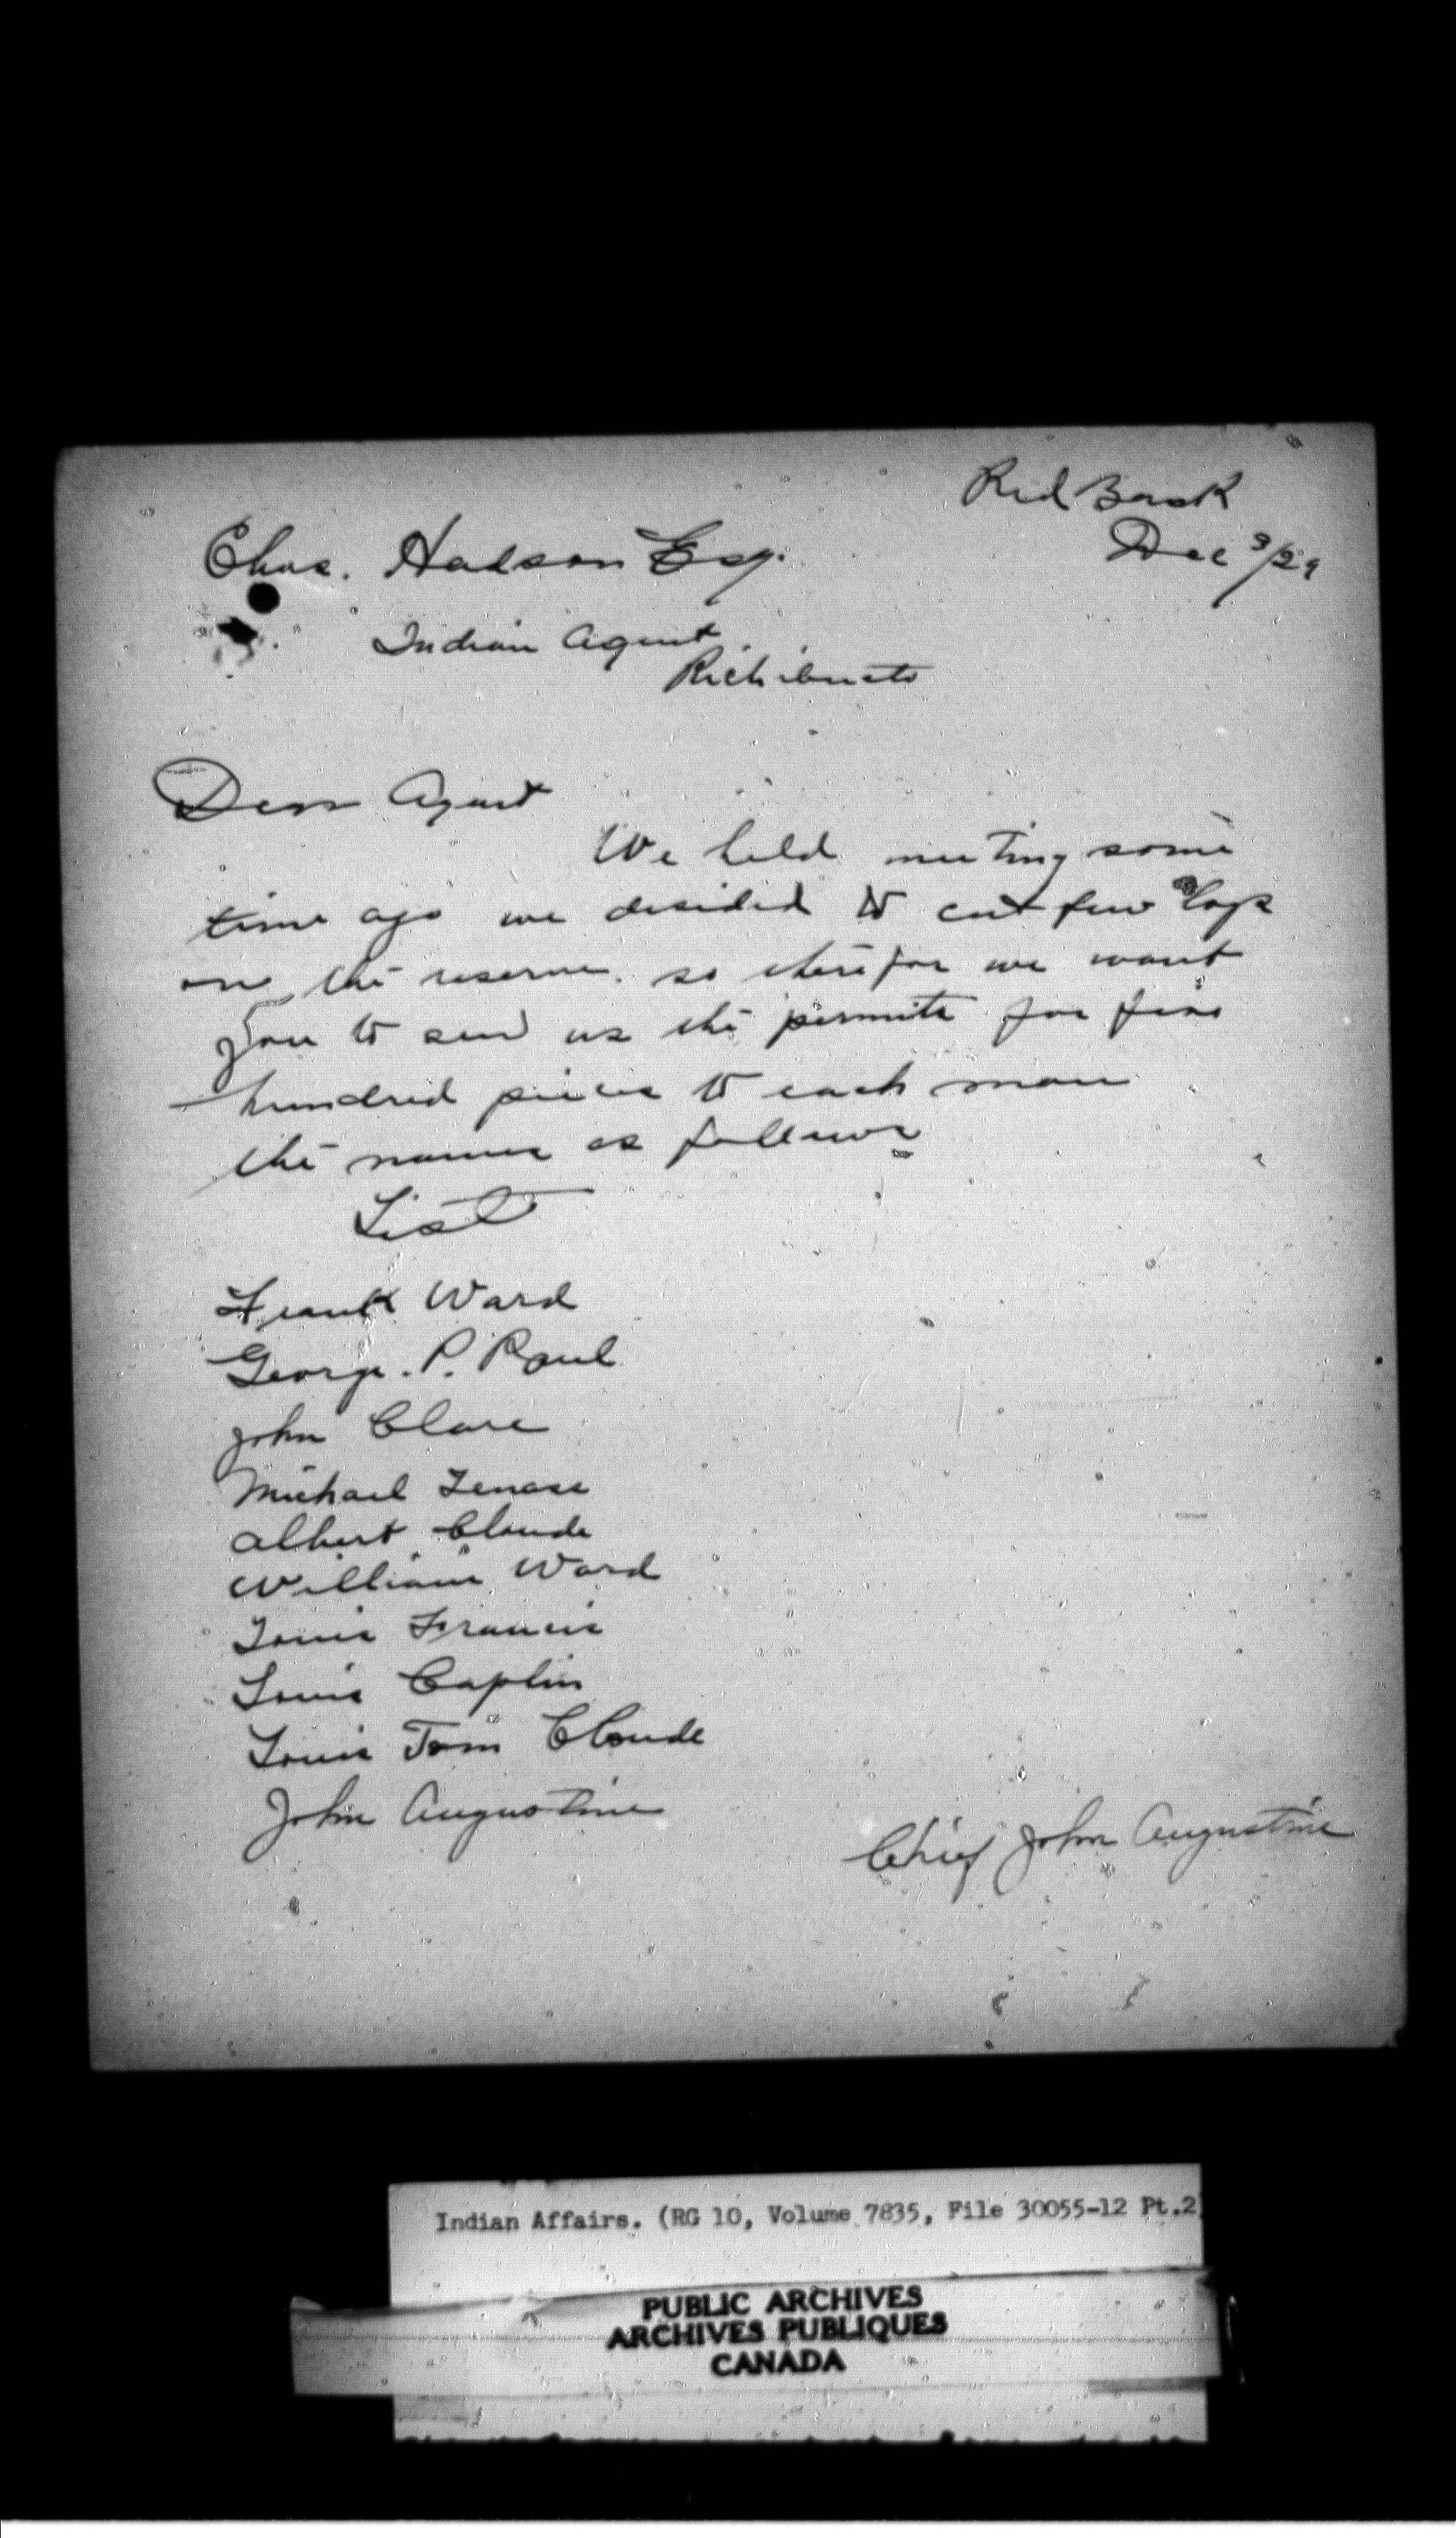 Red Bank
Dec 3/29
Chas. Hudson Esq.
Indian Agent
Richibucto
Dear Agent
We held meeting some
time ago we desided to cut few logs
on the reserve. so therefor we want
you to send us the permits for five
hundred pieces to each man
the names as follows
List
Frank Ward
George. P. Paul
John Clare
Michael Tenass
Albert Claude
William Ward
Louis Francis
Louis Caplin
Louis Tom Cloude
John Augustine
Chief John Augustine
Indian Affairs. (RG 10, Volume 7835, File 30055-12 Pt.2
PUBLIC ARCHIVES
ARCHIVES PUBLIQUES
CANADA